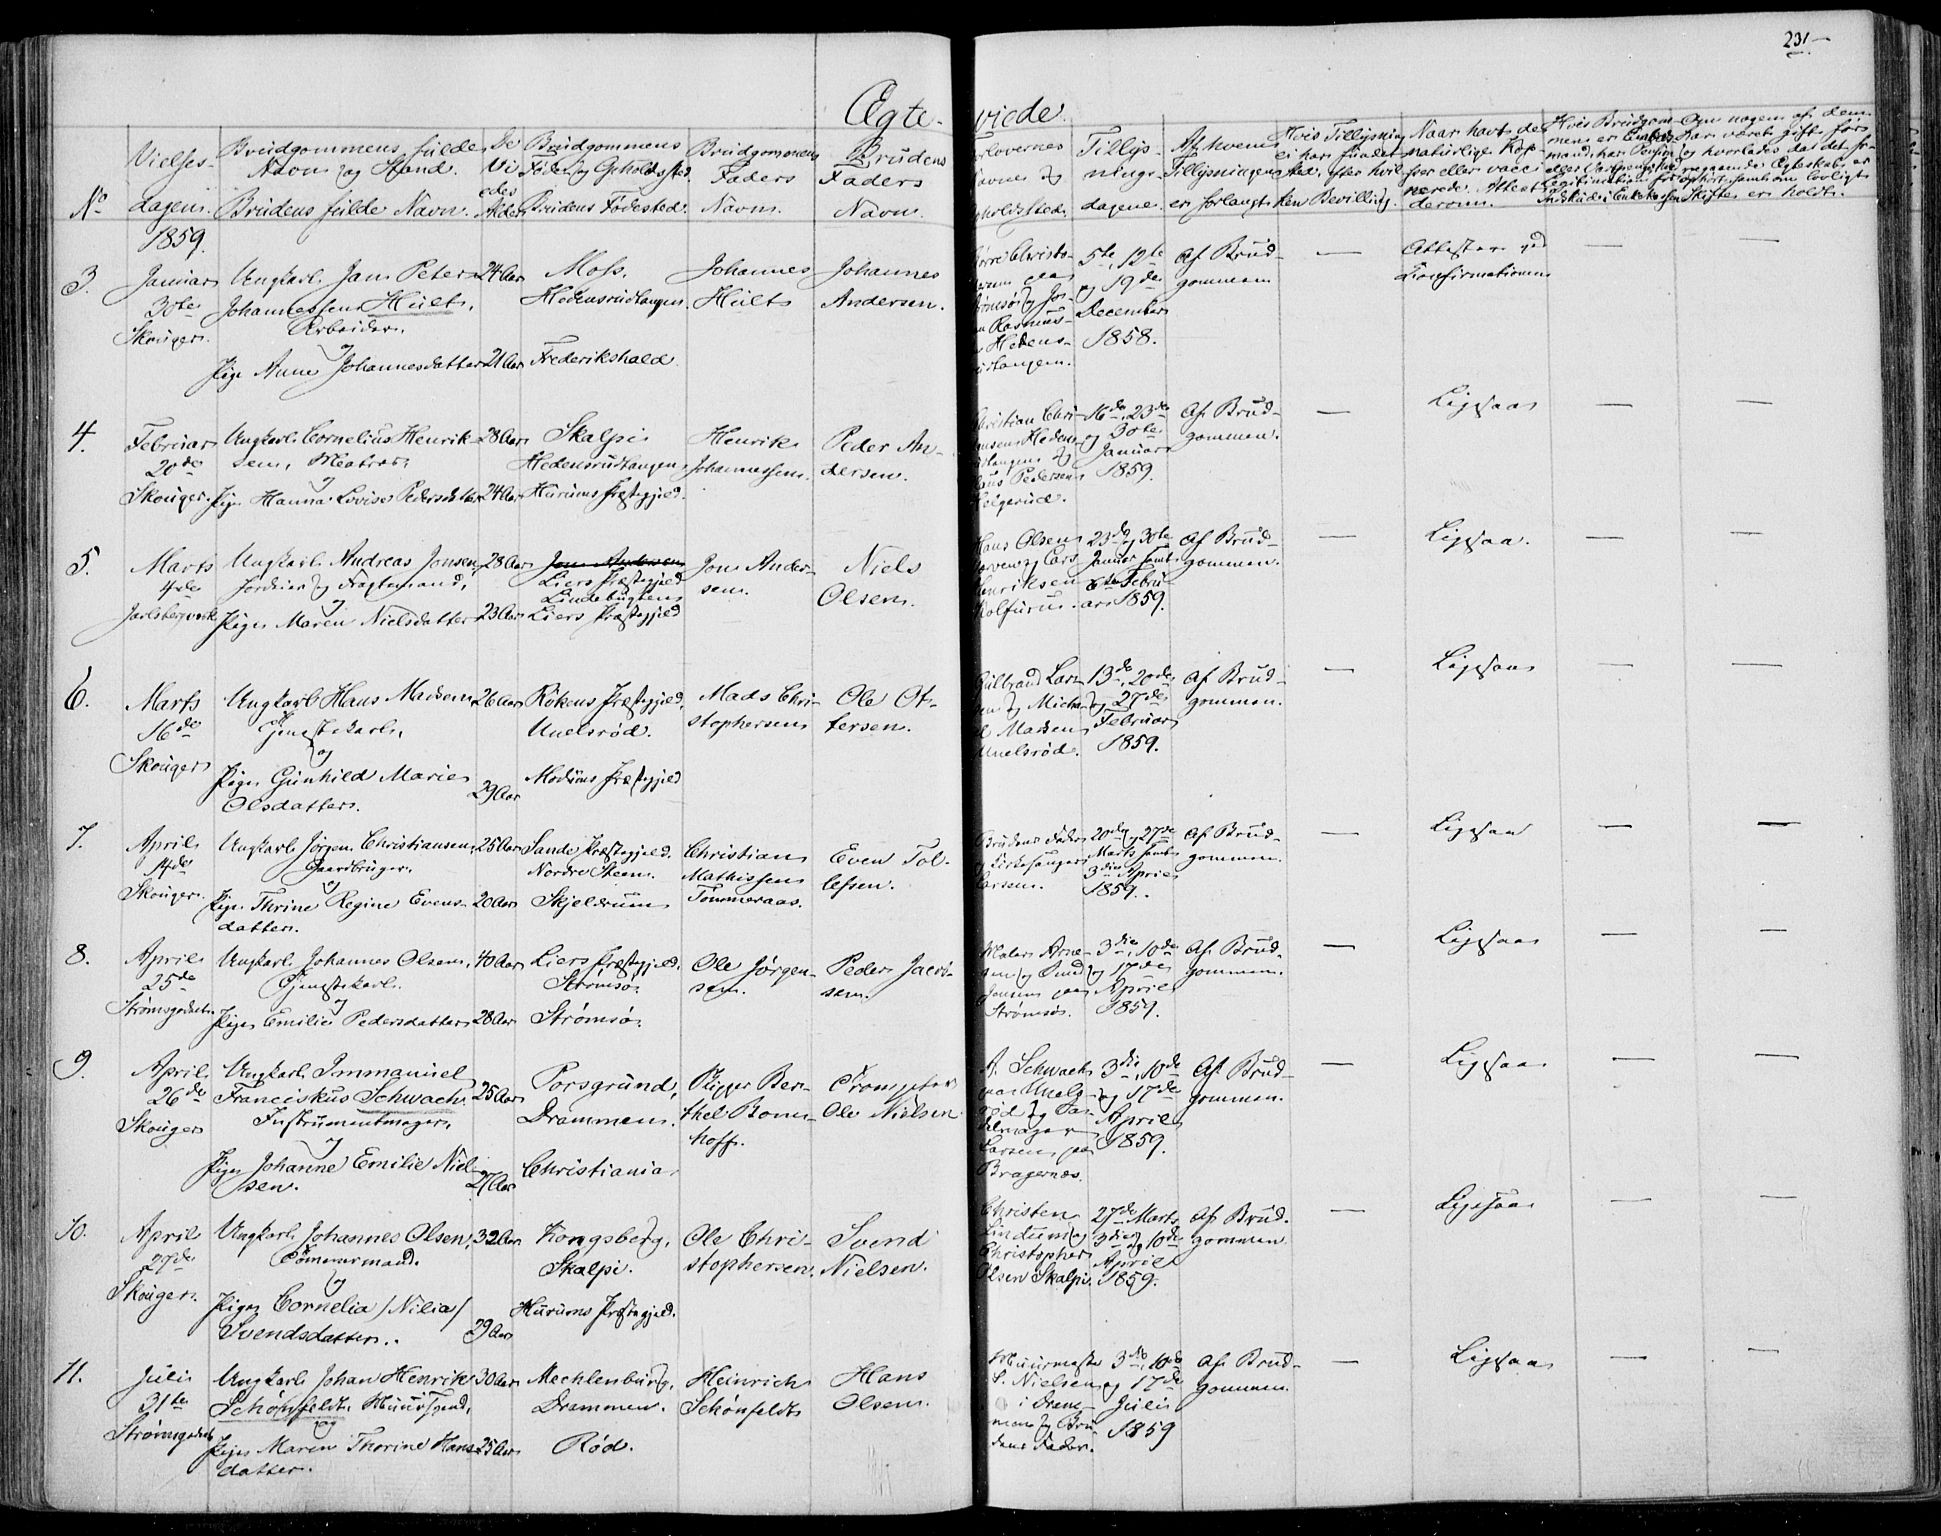 231
Ægte-viede
No
Vielses-
dagen.
Brudgommens fulde
Navn og Stand.
Brudens fulde Navn.
De
Vi
edes
Alder
Brudgommens
Føde og Opholdssted
Brudens Fødested.
Brudgommens
Faders
Navn.
Brudens
Faders
Navn.
orlovernes
Navne og
pholdssted.
Tillys-
nings-
dagene.
Af hvem
Tillysningen
er forlangt
Hvis Tillysning
ei har fundet
sted, efter hvil-
ken Bevilling.
Naar havt de
naturlige Kop-
per eller vacci-
nerede. Attest
derom.
1859.
3.
Januar
30te
Skouger.
Ungkarl Jans Peter
Johannessen Hult,
Arbeider,
og
Pige Anne Johannesdatter
24 Aar
21 Aar
Moss,
Hedensrudtangen.
Frederikshald
Johannes
Hult
Johannes
Andersen.
5te, 12te
og 19de
December
1858.
Af Brud-
gommen
—
Attester ved
Confirmationen
—
—
4.
Februar
20de
Skouger.
Ungkarl Cornelius Henrik-
sen, Matros,
og
Pige Hanna Lovise Pedersdatter
28 Aar
24 Aar
Skalpi
Hedensrudtangen.
Hurums Præstegjeld.
Henrik
Johannessen.
Peder An-
dersen.
ristian Chri-
ansen Hedens-
dtangen og
aus Pedersen
Helgerud.
16de, 23de
og 30te
Januar
1859.
Af Brud-
gommen.
—
Ligesaa
—
—
5.
Marts
4de
Jarlsbergverk
Ungkarl Andreas Jonsen,
Jordeier og Fragtemand,
og
Pige Maren Nielsdatter
28 Aar
23 Aar
Jon Andersen
Liers Præstegjeld
Lindebugten
Liers Præstegjeld
Jon Ander-
sen.
Niels
Olsen.
Hans Olsen
og Lars
enriksen
23de og 30te
Januar samt
6te Febru-
ar 1859.
Af Brud-
gommen.
—
Ligesaa.
—
—
6.
Marts
16de
Skouger
Ungkarl Hans Madsen
Tjenestekarl,
og
Pige Gunhild Marie
Olsdatter.
26 Aar
29 Aar
Røkens Præstegjeld,
Unelsrød.
Modums Præstegjeld
Mads Chri-
stophersen
Ole Ot-
tersen.
Gulbrand Lar-
sen og Micha-
el Madsen
Unelsrød.
13de, 20de
og 27de
Februar
1859.
Af Brud-
gommen.
—
Ligesaa
—
—
7.
April
14de
Skouger.
Ungkarl Jørgen Christiansen,
Gaardbruger.
og
Pige Thrine Regine Evens-
datter.
25 Aar
20 Aar
Sande Præstegjeld.
Nordre Steen.
Skjeldrum
Christian
Mathissen
Tømmeraas.
Even Tol-
lefsen.
Brudens Fader
og Kirkesanger
Larsen.
20de og 27de
Marts samt
3die April
1859.
Af Brud-
gommen.
—
Ligesaa
—
—
8.
April
25de
Strømsgodset
Ungkarl Johannes Olsen,
Tjenestekarl.
og
Pige Emilie Pedersdatter
40 Aar
28 Aar
Liers Præstegjeld,
Strømsø.
Strømsø.
Ole Jørgen-
sen.
Peder Jacob-
sen.
Jensen paa
Strømsø.
3die, 10de
og 17de
April
1859.
Af Brud-
gommen.
—
Ligesaa
—
—
9.
April
26de
Skouger
Ungkarl Immanuel
Franciskus Schwach
Instrumentmager,
og
Pige Johanne Emilie Niel-
sen.
25 Aar
27 Aar
Porsgrund,
Drammen.
Christiania
Skipper Ber-
thel Born-
hoff.
Ole Nielsen
A. Schwach
Larsen paa
Bragernæs.
3die, 10de
og 17de
April
1859.
Af Brud-
gommen.
—
Ligesaa
—
—
10.
April
27de
Skouger.
Ungkarl Johannes Olsen,
Tømmermand.
og
Pige Cornelia /Nilia/
Svendsdatter.
32 Aar
29 Aar
Kongsberg,
Skalpi.
Hurums Præstegjeld.
Ole Chri-
stophersen.
Svend
Nielsen.
Christen
Lindum og
Christopher
Olsen Skalpi.
27de Marts
3die og 10de
April
1859.
Af Brud-
gommen
—
Ligesaa
—
—
11.
Juli
31te
Strømsgodset
Ungkarl Johan Henrik
Schønfeldt, Muursvend,
og
Pige Maren Thorine Hans-
datter.
30 Aar
25 Aar
Mechlenburg,
Drammen.
Rød.
Heinrich
Schønfeldt
Hans
Olsen.
Muurmester
S. Nielsen
i Dram-
men og Bru-
dens Fader.
3die, 10de
og 17de
Juli
1859
Af Brud-
gommen.
—
Ligesaa
—
—